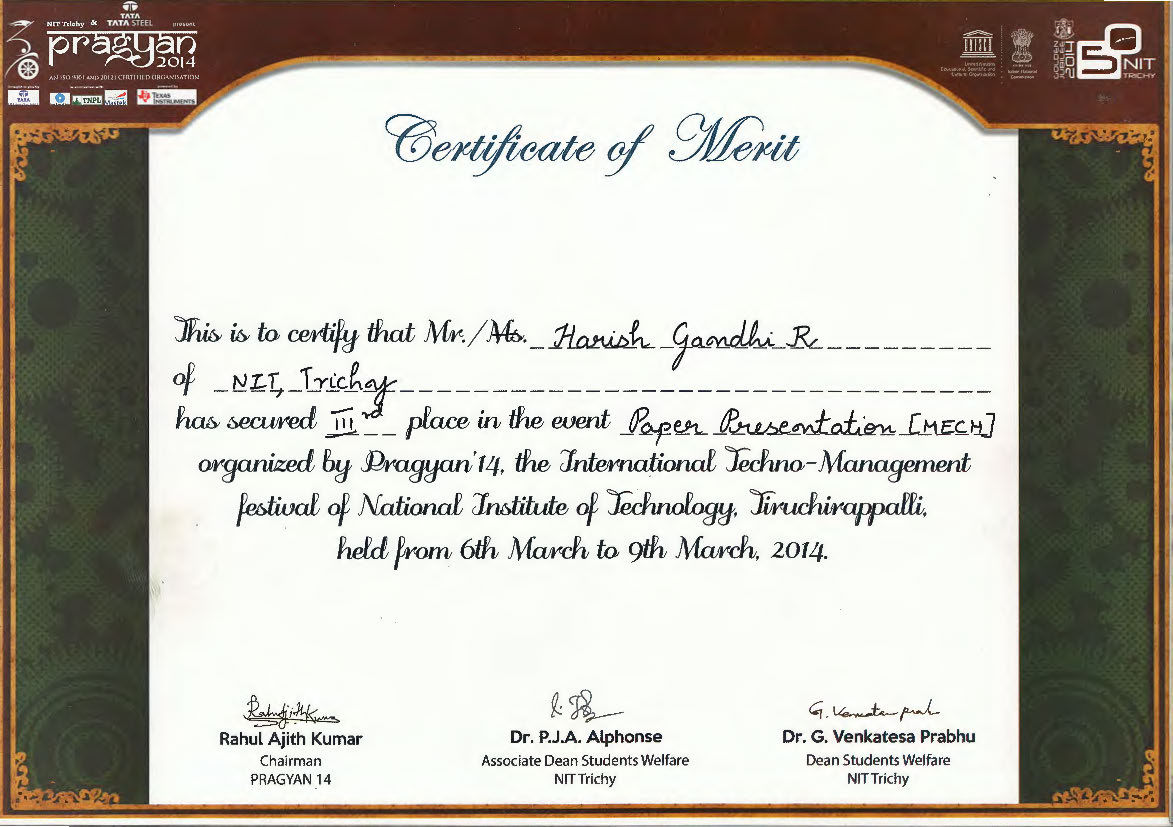 NIT Trichy & TATA TATA STEEL present
pragyan
2014
AN ISO 9001 AND 20121 CERTIFIED ORGANISATION
TATA
TNPL
TEXAS INSTRUMENTS
UNESCO
United Nations
Educational, Scientific and
Cultural Organization
Indian National
Commission
GOLDEN JUBILEE 2014
50 NIT
TRICHY
Certificate of Merit
This is to certify that Mr./Ms. Harish Gaandhi R
of NIT, Trichy
has secured III rd place in the event Paper Presentation [MECH]
organized by Pragyan'14, the International Techno-Management
festival of National Institute of Technology, Tiruchirappalli,
held from 6th March to 9th March, 2014.
Rahul Ajith Kumar
Chairman
PRAGYAN 14
Dr. P.J.A. Alphonse
Associate Dean Students Welfare
NIT Trichy
G. Venkatesa Prabhu
Dr. G. Venkatesa Prabhu
Dean Students Welfare
NIT Trichy